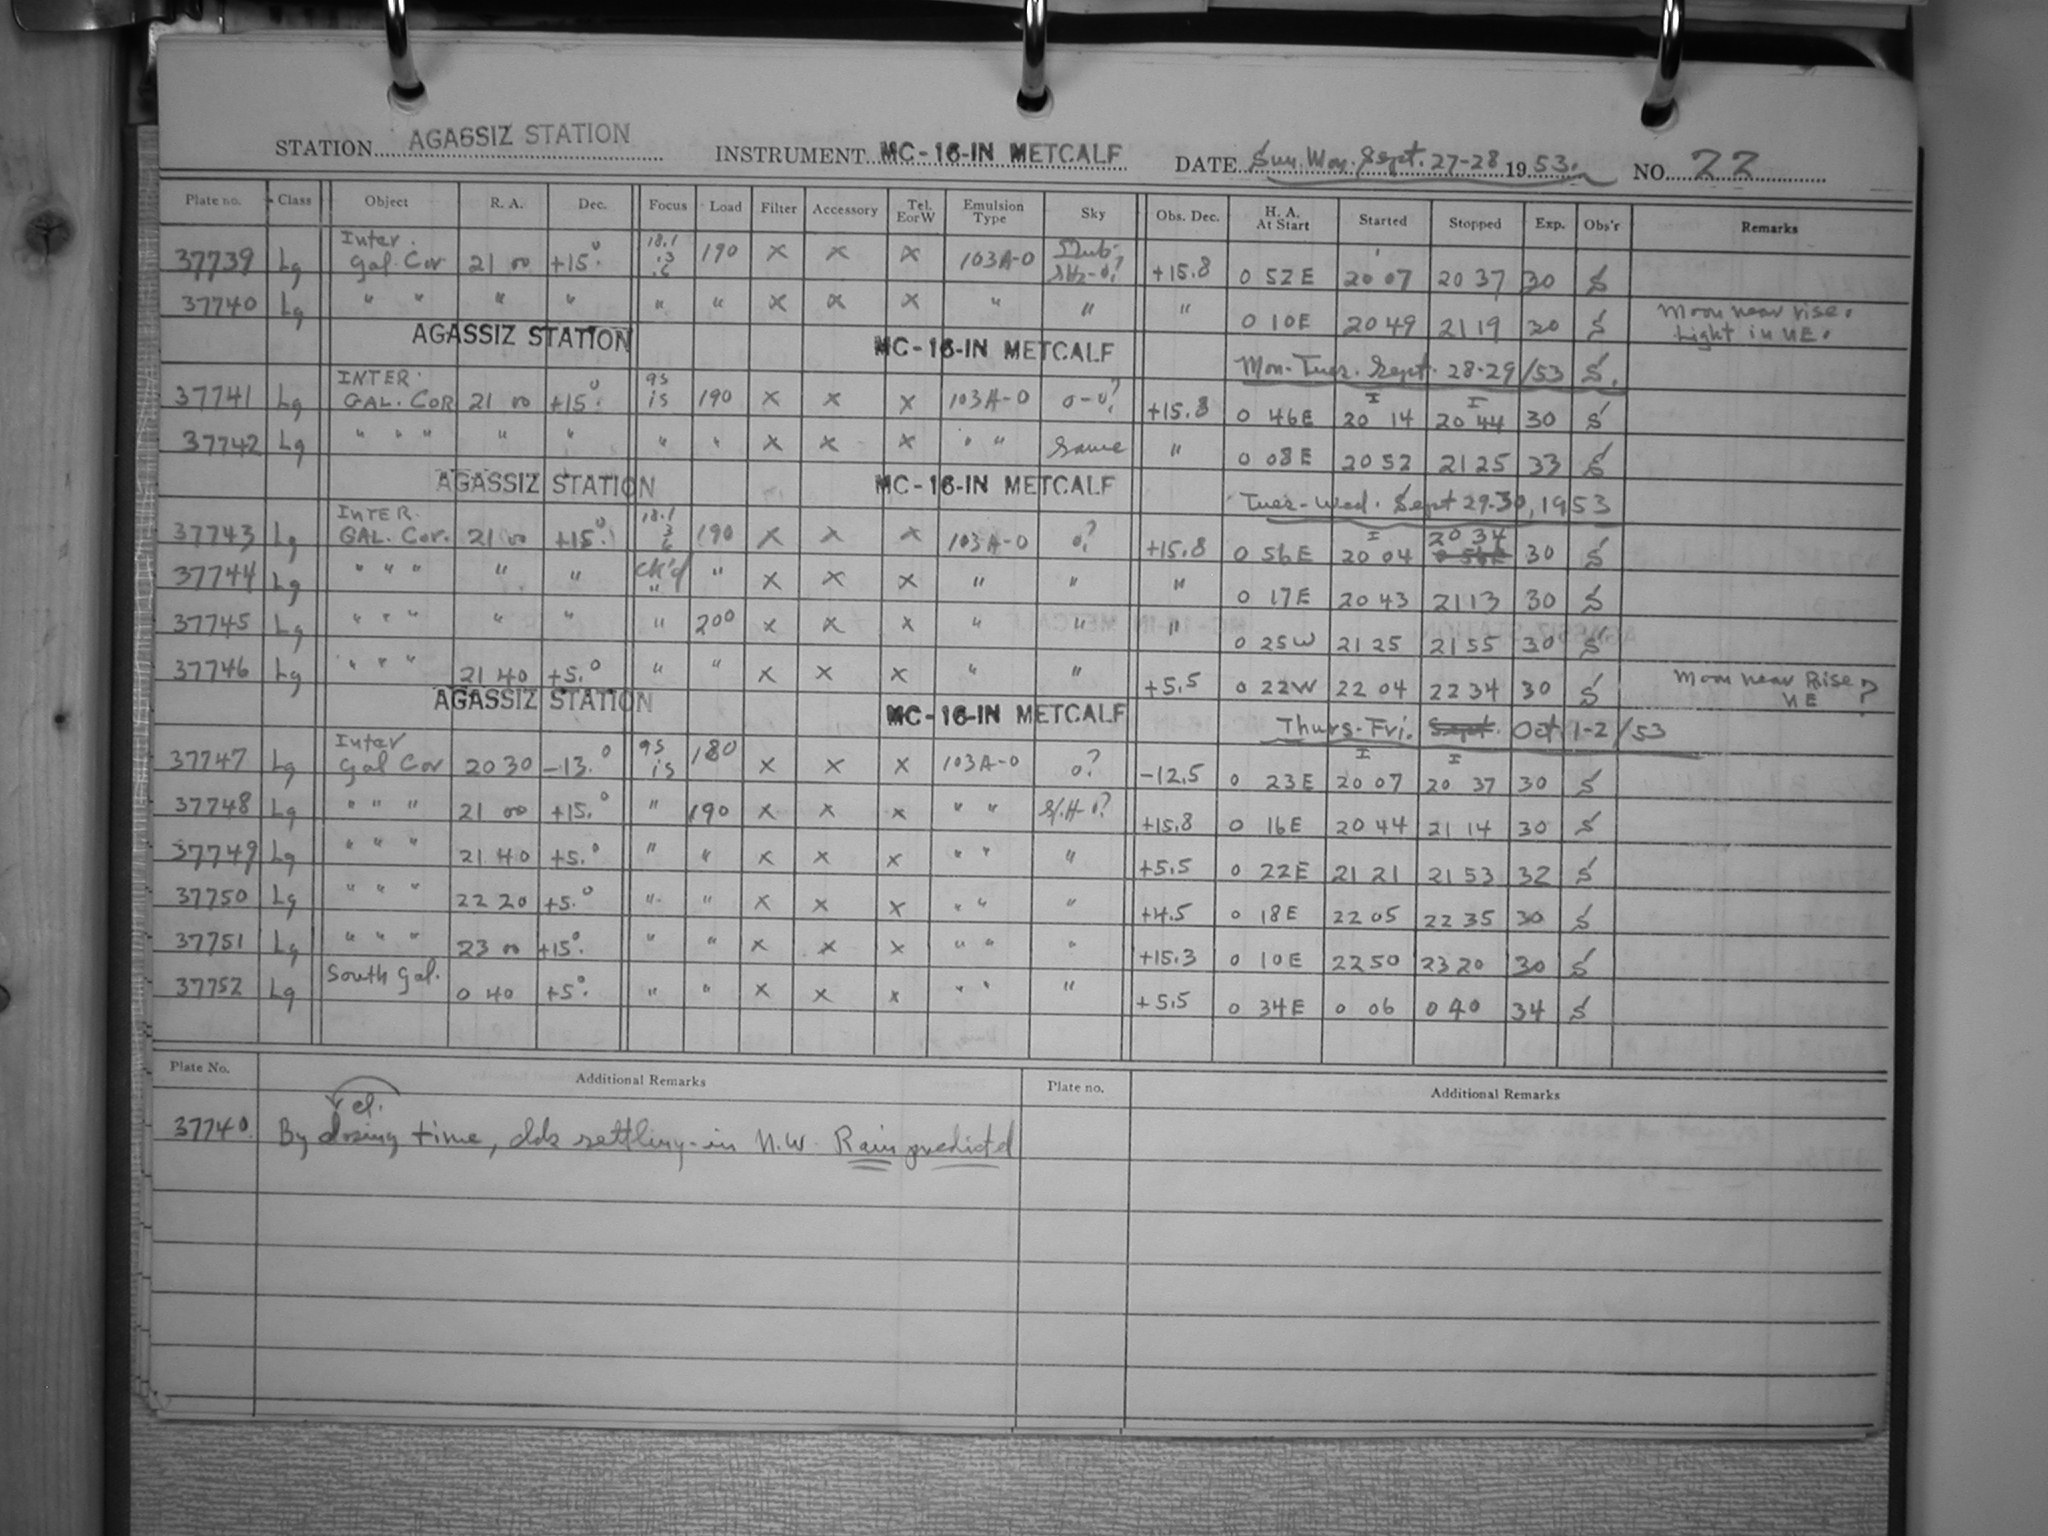 STATION AGASSIZ STATION INSTRUMENT MC-16-IN METCALF DATE Sun. Mon. Sept. 27-28 1953. NO. 22
Plate no. Class Object R. A. Dec. Focus Load Filter Accessory Tel. E or W Emulsion Type Sky Obs. Dec. H. A. At Start Started Stopped Exp. Obs'r Remarks
37739 Lg Inter. Gal. Cor 21 00 +15.° 18.1 .3 .6 190 x x x 103A-0 +15.8 0 52E 20 07 20 37 30 S
37740 Lg " " " " " " x x x " " " 0 10E 20 49 21 19 30 S Moon near rise. Light in NE.
AGASSIZ STATION MC-16-IN METCALF Mon-Tues. Sept. 28-29/53 S.
37741 Lg INTER. GAL. COR 21 00 +15.° as is 190 x x x 103A-0 0-0? +15.8 0 46E 20 14 20 44 30 S
37742 Lg " " " " " " " x x x " " Same " 0 08E 20 52 21 25 33 S
AGASSIZ STATION MC-16-IN METCALF Tues-Wed. Sept 29-30, 1953
37743 Lg INTER. GAL. Cor. 21 00 +15.° 18.1 3 6 190 x x x 103A-0 0? +15.8 0 56E 20 04 20 34 0 56E 30 S
37744 Lg " " " " " ck'd " " x x x " " " 0 17E 20 43 21 13 30 S
37745 Lg " " " " " " 200 x x x " " " 0 25W 21 25 21 55 30 S
37746 Lg " " " 21 40 +5.° " " x x x " " +5.5 0 22W 22 04 22 34 30 S Moon near Rise NE ?
AGASSIZ STATION MC-16-IN METCALF Thurs-Fri. Sept. Oct 1-2/53
37747 Lg Inter Gal Cor 20 30 -13.° as is 180 x x x 103A-0 0? -12.5 0 23E 20 07 20 37 30 S
37748 Lg " " " 21 00 +15.° " 190 x x x " " S/H-0? +15.8 0 16E 20 44 21 14 30 S
37749 Lg " " " 21 40 +5.° " " x x x " " " +5.5 0 22E 21 21 21 53 32 S
37750 Lg " " " 22 20 +5.° " " x x x " " " +4.5 0 18E 22 05 22 35 30 S
37751 Lg " " " 23 00 +15°. " " x x x " " " +15.3 0 10E 22 50 23 20 30 S
37752 Lg South Gal. 0 40 +5°. " " x x x " " " +5.5 0 34E 0 06 0 40 34 S
Plate No. Additional Remarks Plate no. Additional Remarks
cl.
37740 By dosing time, clds settling-in N.W. Rain predictd